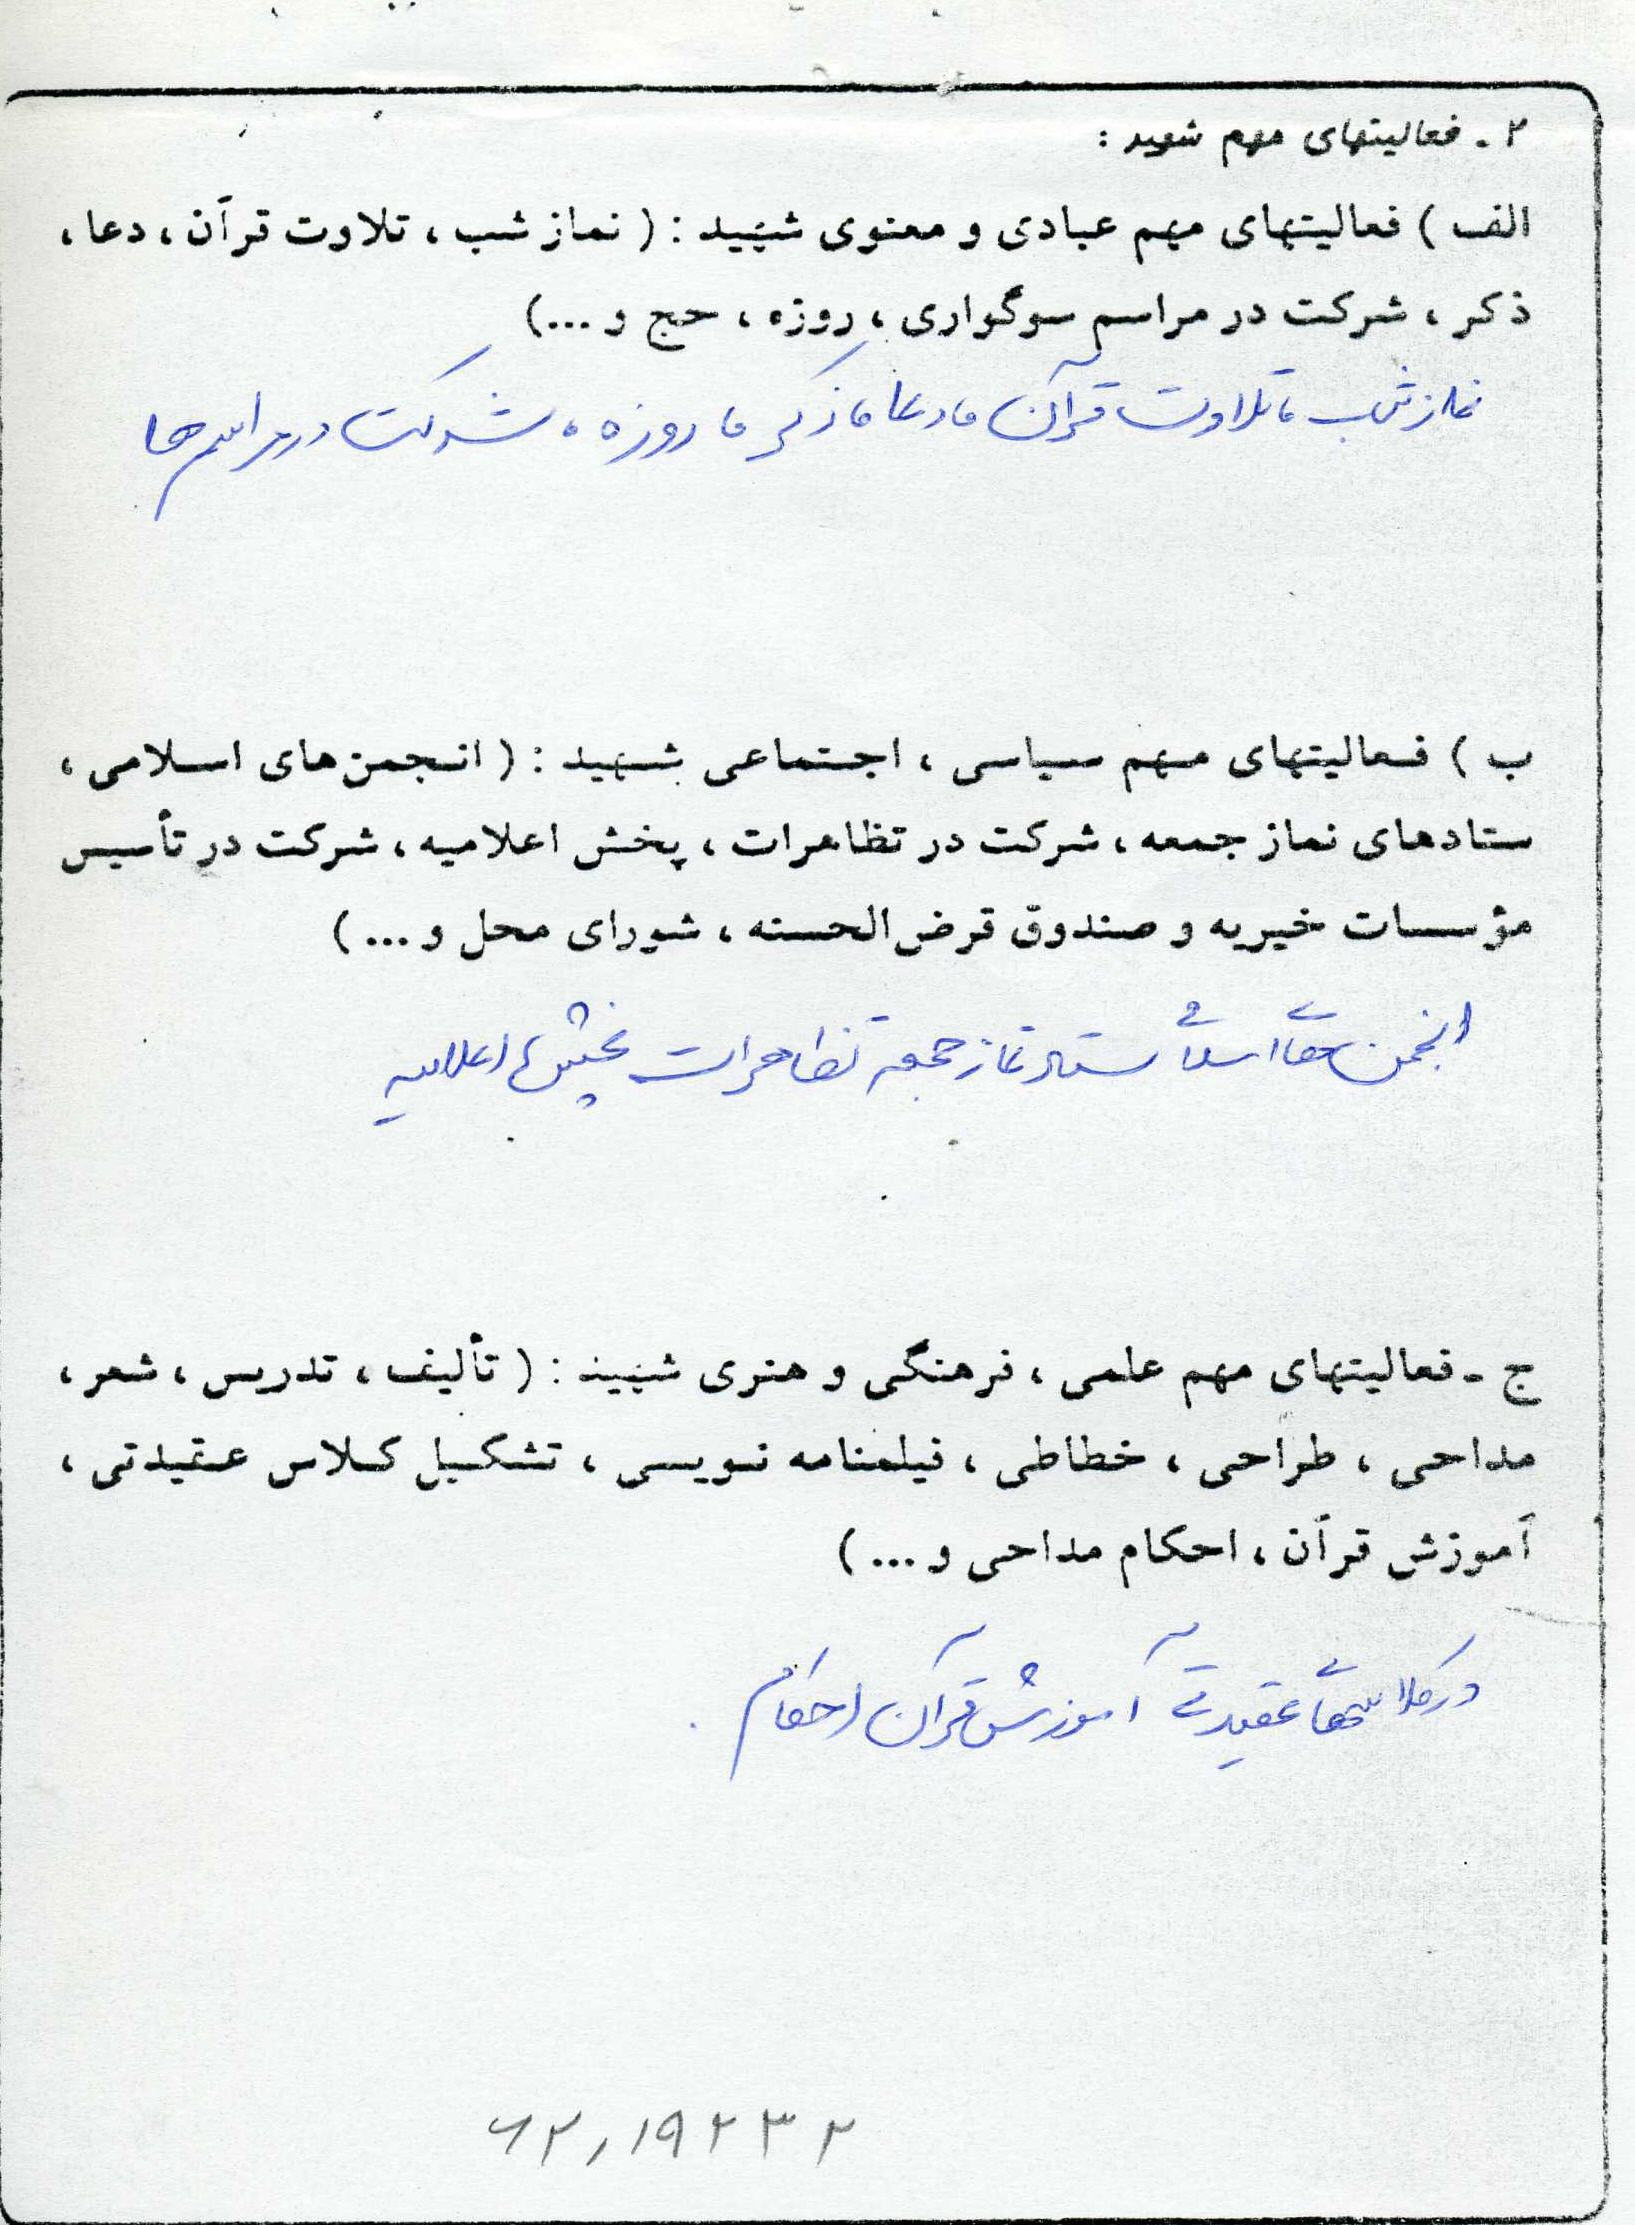 ۲ ـ فعالیتهای مهم شهید :
الف ) فعالیتهای مهم عبادی و معنوی شهید : ( نماز شب ، تلاوت قرآن ، دعا ،
ذکر ، شرکت در مراسم سوگواری ، روزه ، حج و ...)
نماز شب ، تلاوت قرآن ، دعا ، ذکر ، روزه ، شرکت در مراسم ها
ب ) فعالیتهای مهم سیاسی ، اجتماعی شهید : ( انجمن‌های اسلامی ،
ستادهای نماز جمعه ، شرکت در تظاهرات ، پخش اعلامیه ، شرکت در تأسیس
مؤسسات خیریه و صندوق قرض‌الحسنه ، شورای محل و ... )
انجمن های اسلامی ستاد نماز جمعه تظاهرات پخش اعلامیه
ج ـ فعالیتهای مهم علمی ، فرهنگی و هنری شهید : ( تألیف ، تدریس ، شعر ،
مداحی ، طراحی ، خطاطی ، فیلمنامه نویسی ، تشکیل کلاس عقیدتی ،
آموزش قرآن ، احکام مداحی و ... )
در کلاسهای عقیدتی آموزش قرآن احکام .
۶۲,۱۹۲۳۲